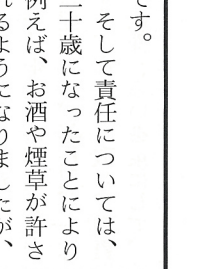 です。
そして責任については、
二十歳になったことにより
例えば、お酒や煙草が許さ
れるようになりましたが、